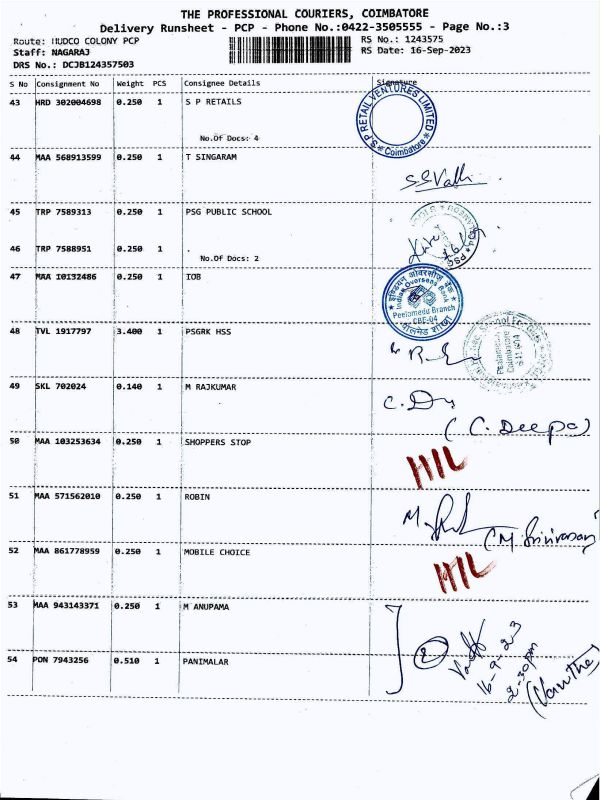 THE PROFESSIONAL COURIERS, COIMBATORE
Delivery Runsheet - PCP - Phone No.:0422-3505555 - Page No.:3
Route: HUDCO COLONY PCP RS No.: 1243575
Staff: NAGARAJ RS Date: 16-Sep-2023
DRS No.: DCJB124357503
S No Consignment No Weight PCS Consignee Details Signature
43 HRD 302004698 0.250 1 S P RETAILS
S.P RETAIL VENTURES LIMITED
Coimbatore
No.Of Docs: 4
44 MAA 568913599 0.250 1 T SINGARAM
S.S Valli
45 TRP 7589313 0.250 1 PSG PUBLIC SCHOOL
PSG
46 TRP 7588951 0.250 1 .
No.Of Docs: 2
47 MAA 10132486 0.250 1 IOB
इण्डियन ओवरसीज़ बैंक
Indian Overseas Bank
Peelamedu Branch
CBE-04
48 TVL 1917797 3.400 1 PSGRK HSS
Peelamedu
Coimbatore
49 SKL 702024 0.140 1 M RAJKUMAR
(C. Deepa)
50 MAA 103253634 0.250 1 SHOPPERS STOP
HIL
51 MAA 571562010 0.250 1 ROBIN
(M. Srinivasan)
52 MAA 861778959 0.250 1 MOBILE CHOICE
HIL
53 MAA 943143371 0.250 1 M ANUPAMA
2
16-9-23
2-30pm
54 PON 7943256 0.510 1 PANIMALAR